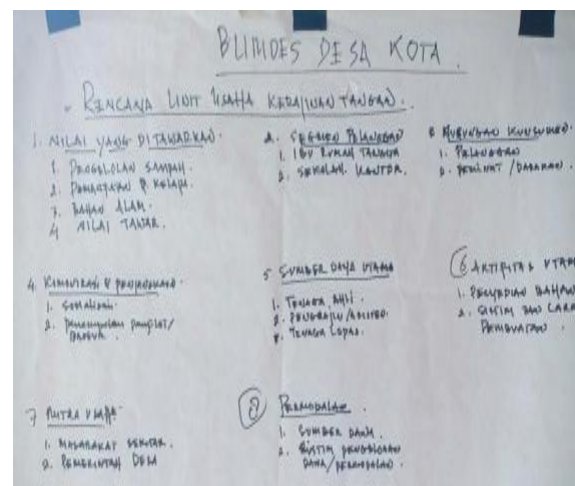 BUMDES DESA KOTA.
RENCANA UNIT USAHA KERAJINAN TANGAN.
1. NILAI YANG DITAWARKAN.
1. PENGELOLAAN SAMPAH.
2. KELAPA.
3. BAHAN ALAM.
4 NILAI TAWAR.
2. SEGMEN PELANGGAN
1. IBU RUMAH TANGGA
2. SEKOLAH, KANTOR.
3 HUBUNGAN KONSUMEN
1. PELANGGAN
2. PEMINAT /
4.
1. SOSIALISASI
2. PAMPLET/
5 SUMBER DAYA UTAMA
1. TENAGA AHLI.
2. PENGRAJIN/
3. TENAGA LEPAS.
6 AKTIFITAS UTAM
1. PENYEDIAN BAHAN
2. SISTIM DAN CARA
PEMBUATAN.
7 MITRA USAHA
1. MASARAKAT SEKITAR.
2. PEMERINTAH DESA
8 PERMODALAN.
1. SUMBER DANA.
2. SISTIM PENGELOLAAN
DANA/PERMODALAN.